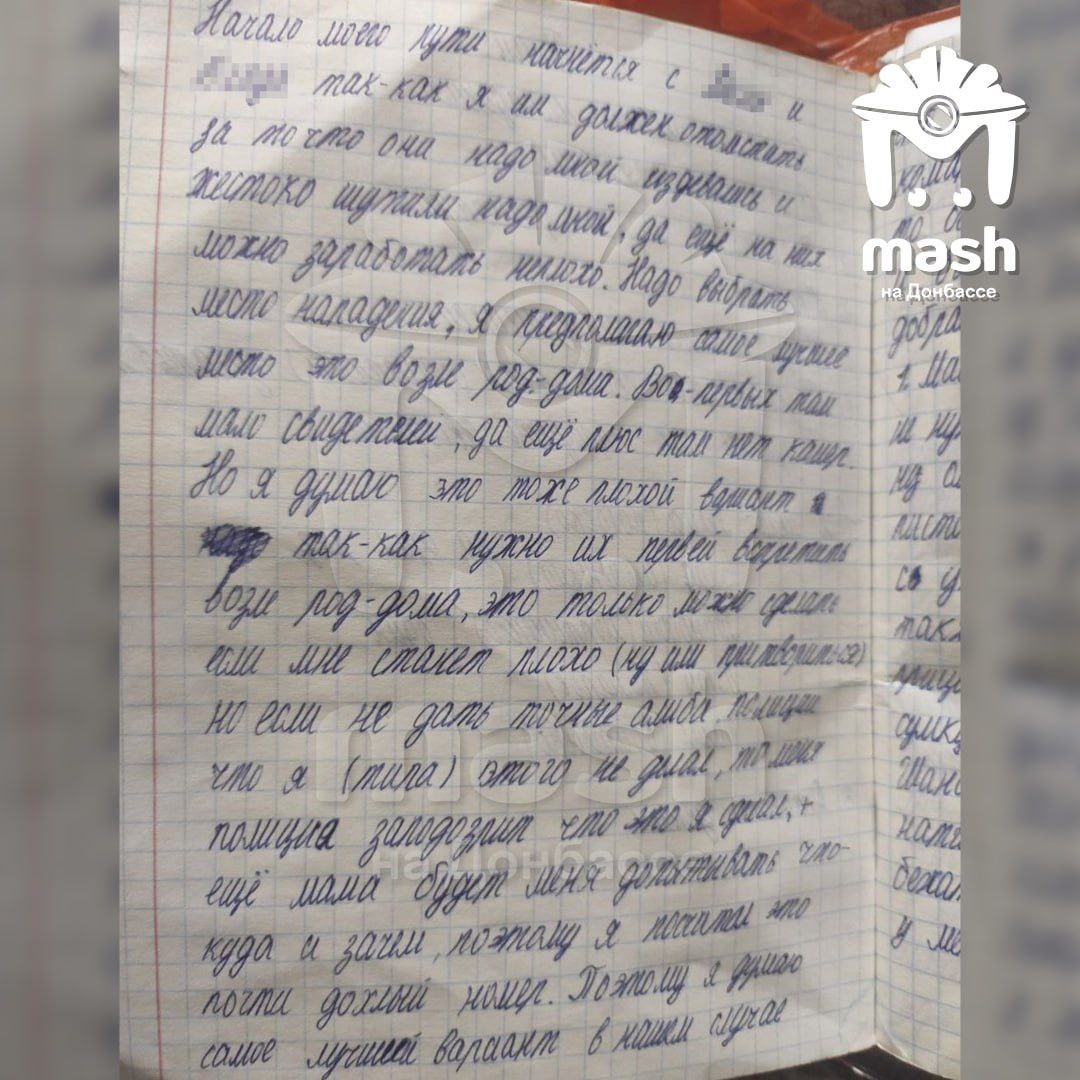 Начало моего пути начнётся с и
так-как я им должен отомстить
за то что они надо мной издевались и
жестоко шутили надо мной, да ещё на них
можно заработать неплохо. Надо выбрать
место нападения, я предполагаю самое лучшее
место это возле род-дома. Во-первых там
мало свидетелей, да ещё плюс там нет камер.
Но я думаю это тоже плохой вариант
так-как нужно их первей встретить
возле род-дома, это только можно сделать
если мне станет плохо (ну или притвориться)
но если не дать точные алиба полиции
что я (типа) этого не делал, то меня
полиция заподозрит что это я сделал, +
ещё мама будет меня допытывать что-
куда и зачем, поэтому я посчитал это
почти дохлый номер. Поэтому я думаю
самое лучший вариант в нашем случае
mash
на Донбассе
добра
1. Ма
не ну
ну
писто
су
так
сумку
Шан
натя
бежат
у ме
mash
на Донбассе